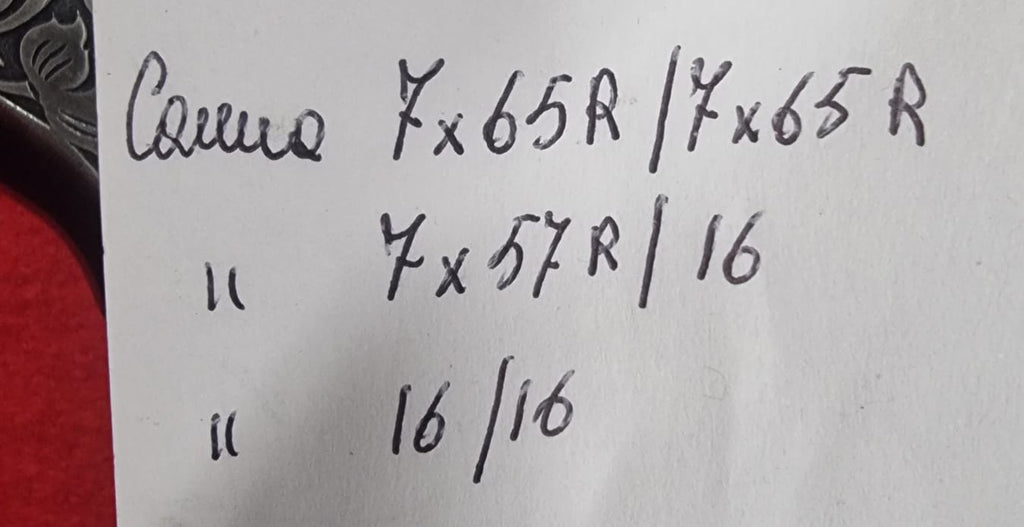 Canna 7x65R/7x65R
" 7x57R/16
" 16/16